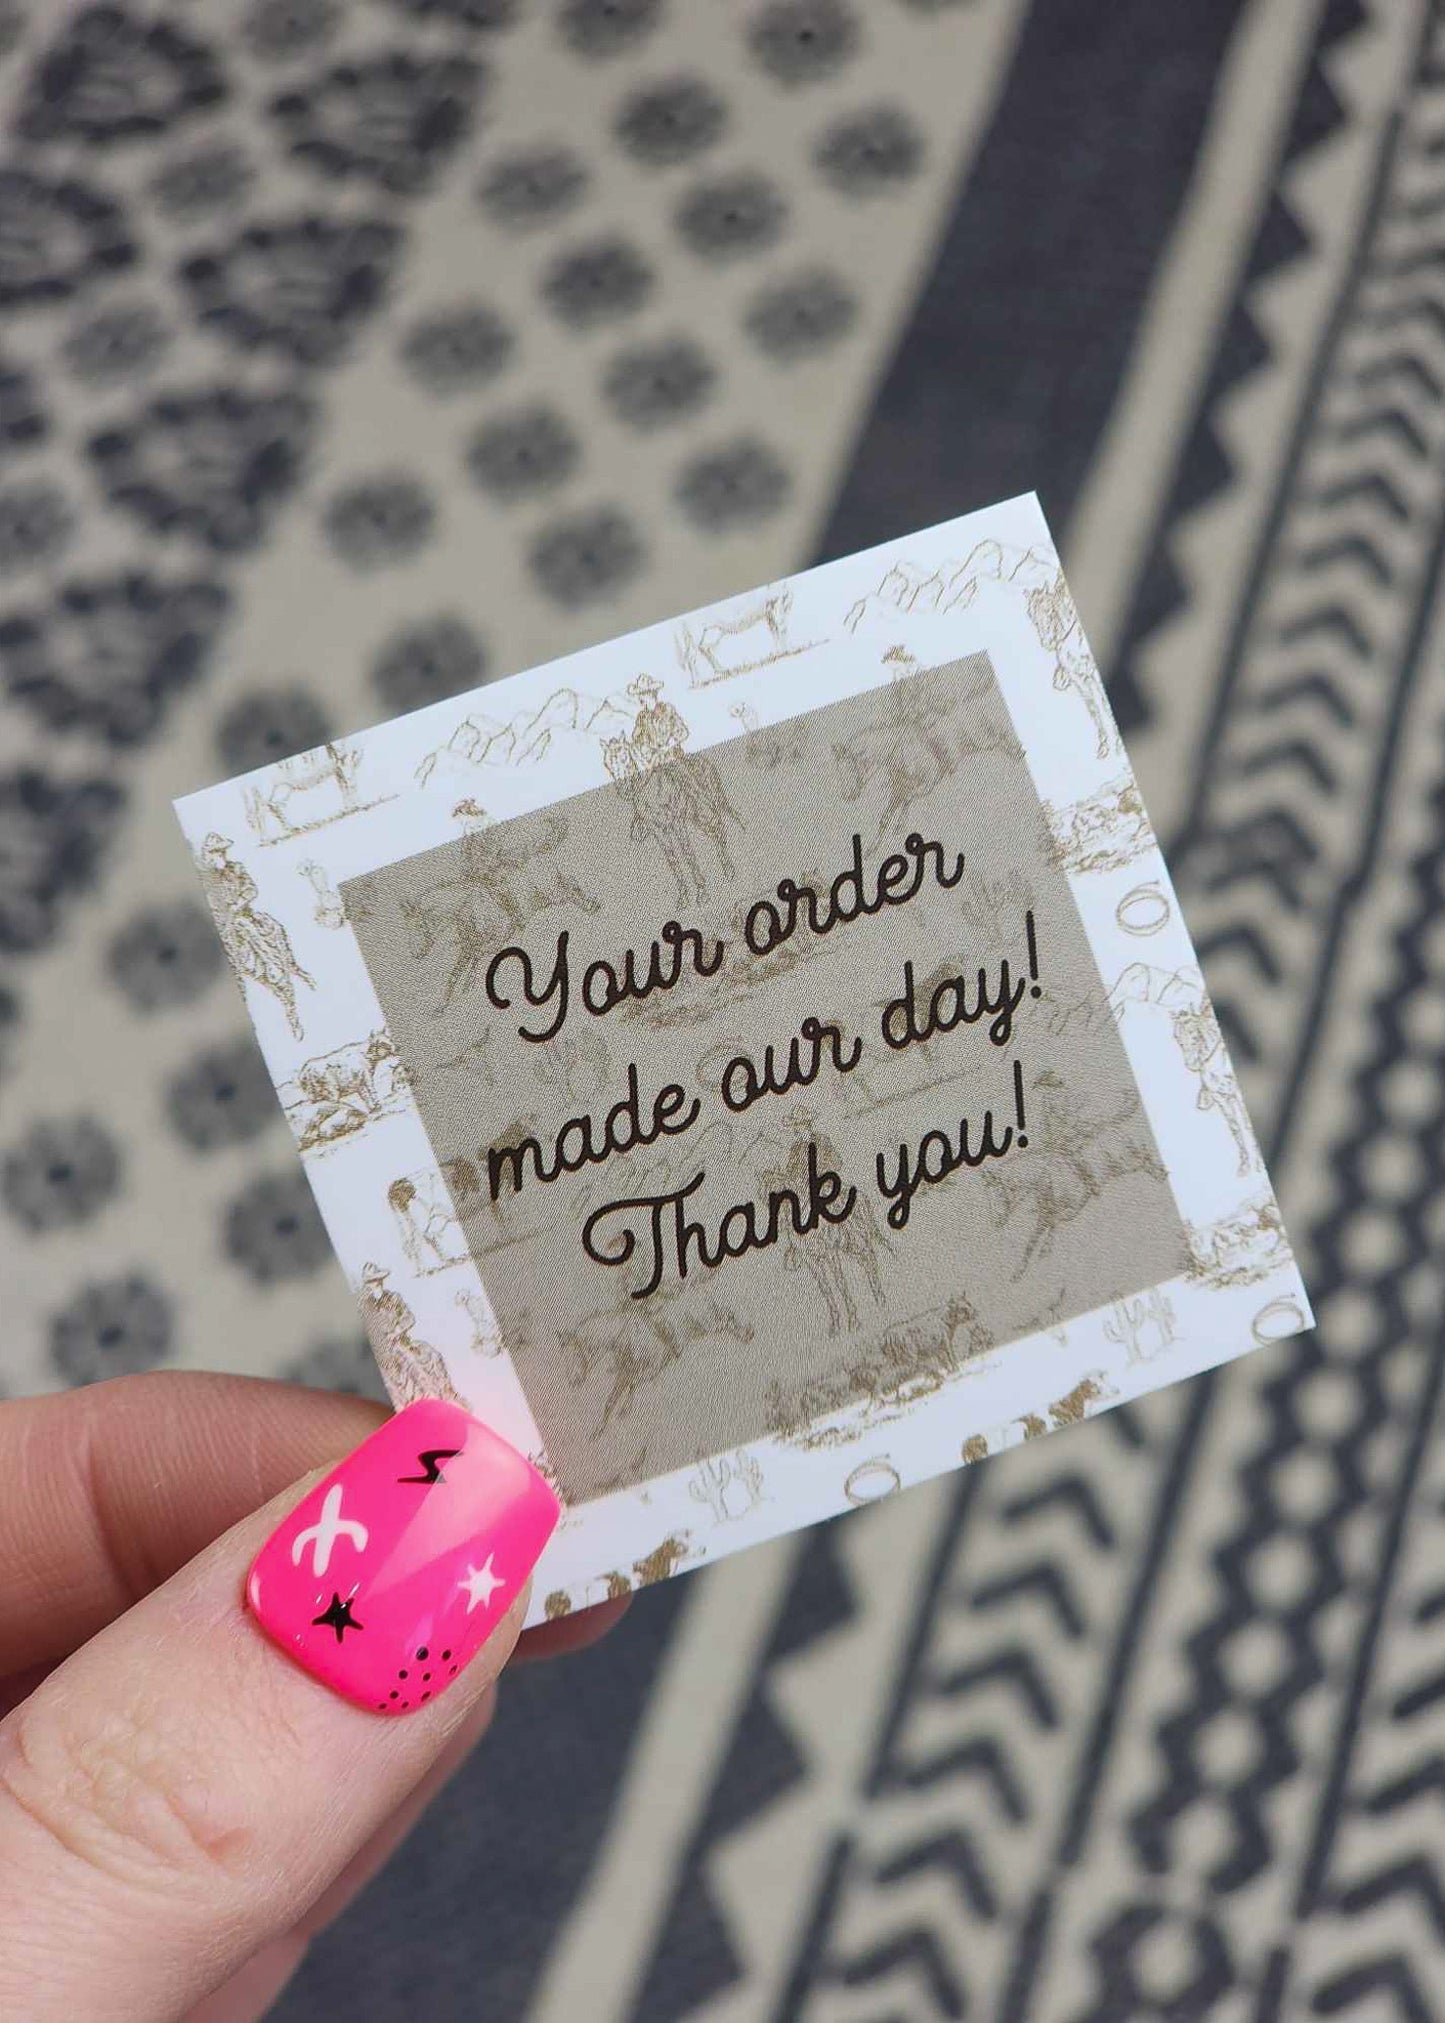 Your order
made our day!
Thank you!